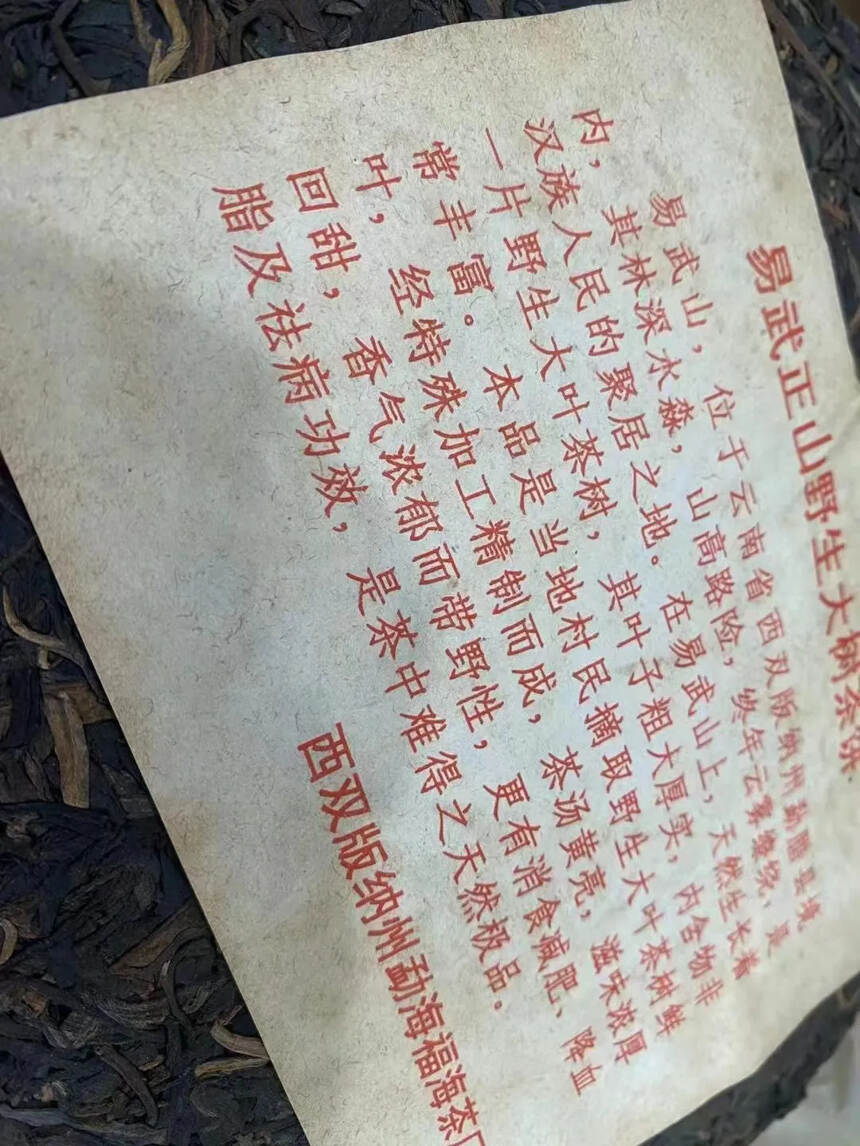 易武正山野生大树茶饼
易武山，位于云南省西双版纳州勐腊县境
内，其林深水森，山高路险，终年云雾缭绕，是
汉族人民的聚居之地。在易武山上，天然生长着
一片野生大叶茶树，其叶子粗大厚实，内含物非
常丰富。本品是当地村民摘取野生大叶茶树鲜
叶，经特殊加工精制而成，茶汤黄亮，滋味浓厚
回甜，香气浓郁而带野性，更有消食减肥、降血
脂及祛病功效，是茶中难得之天然极品。
西双版纳州勐海福海茶厂